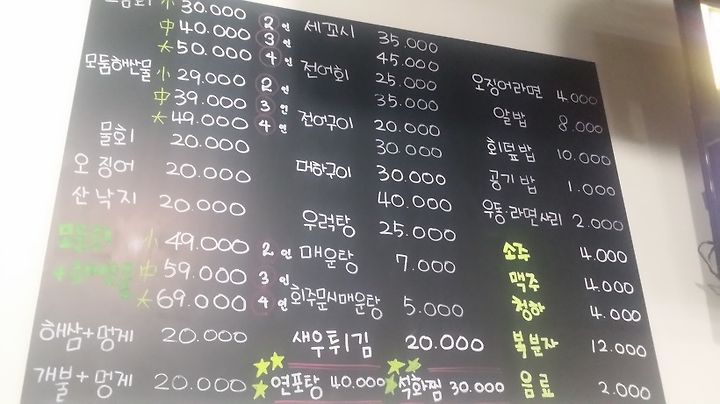 小 30.000 2인
中 40.000 3인
大 50.000 4인
모둠해산물 小 29.000 2인
中 39.000 3인
大 49.000 4인
물회 20.000
오징어 20.000
산낙지 20.000
小 49.000 2인
中 59.000 3인
大 69.000 4인
해삼+멍게 20.000
개불+멍게 20.000
세꼬시 35.000
45.000
전어회 25.000
35.000
전어구이 20.000
30.000
대하구이 30.000
40.000
우럭탕 25.000
매운탕 7.000
회주문시매운탕 5.000
새우튀김 20.000
연포탕 40.000
석화찜 30.000
오징어라면 4.000
알밥 8.000
회덮밥 10.000
공기밥 1.000
우동·라면사리 2.000
소주 4.000
맥주 4.000
청하 4.000
복분자 12.000
음료 2.000